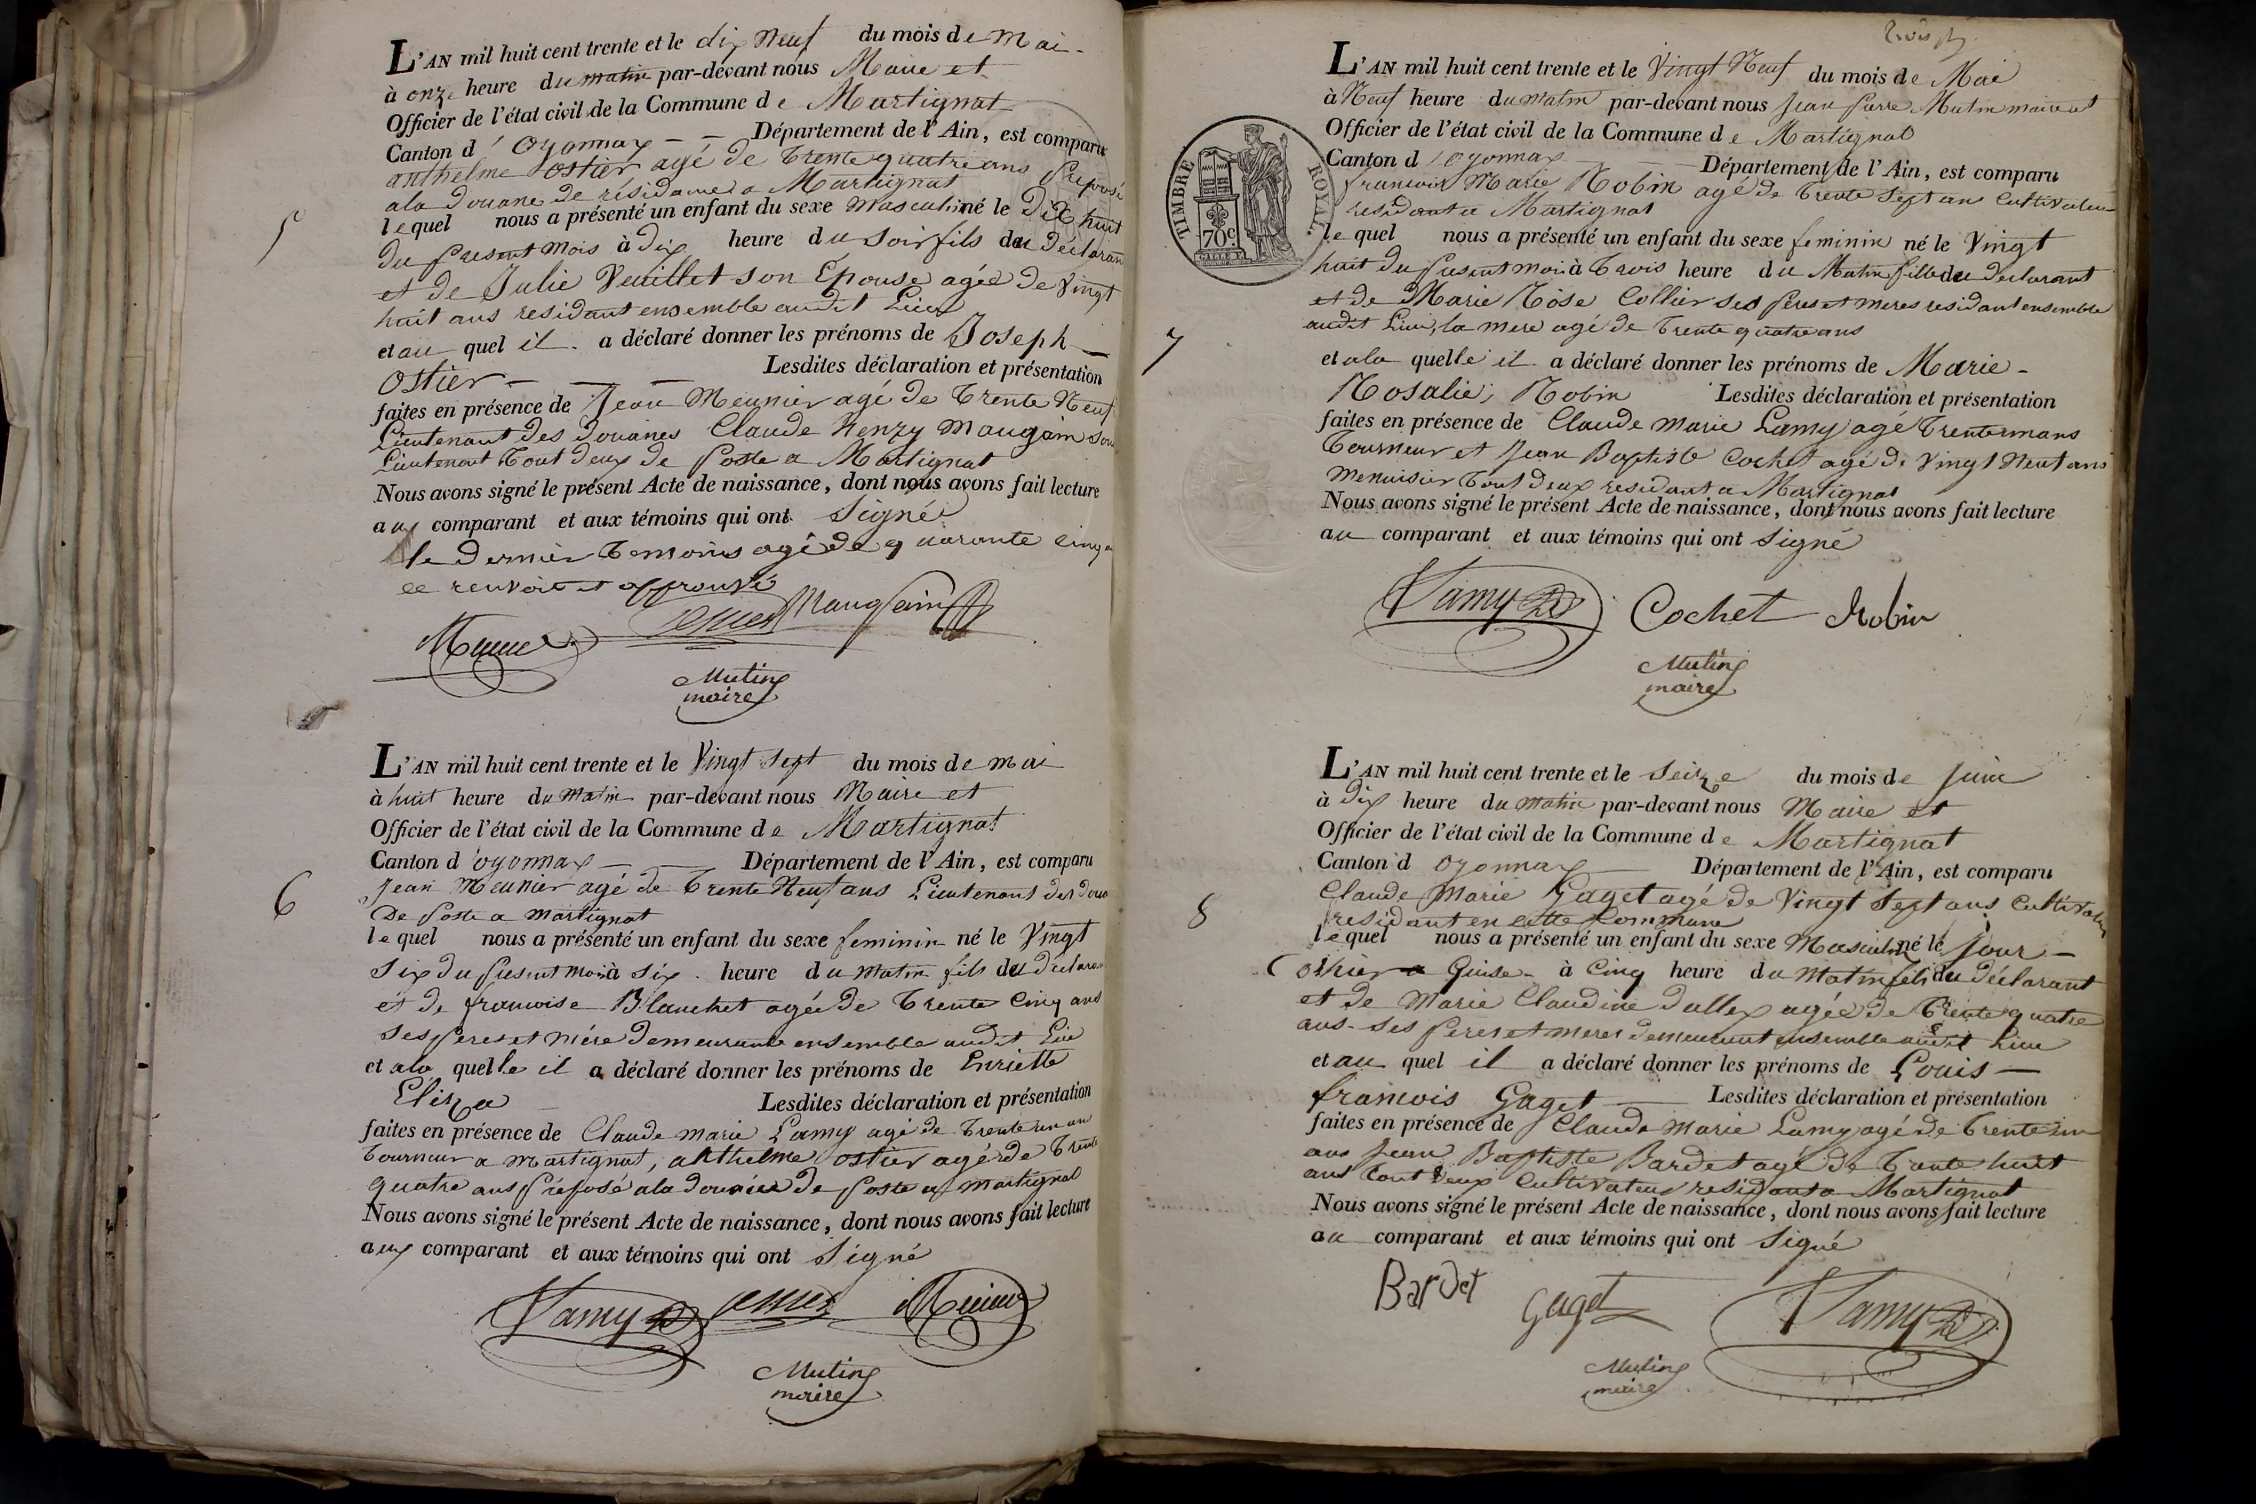 L'AN mil huit cent trente et le dix Neuf du mois de Mai
à onze heure du matin par-devant nous Maire et
Officier de l'état civil de la Commune de Martignat
Canton d'Oyonnax Département de l'Ain, est comparu
anthelme ostier agé de trente quatre ans préposé
ala douane de résidance a Martignat
5
lequel nous a présenté un enfant du sexe masculin né le Dix huit
du présent mois à dix heure du soir fils du déclarant
et de Julie Vuillet son Épouse agée de Vingt
huit ans residant ensemble audit Lieu
et au quel il a déclaré donner les prénoms de Joseph
Ostier Lesdites déclaration et présentation
faites en présence de Jean Meunier agé de trente Neuf
Lieutenant des douanes Claude Henry Maugain sou
Lieutenant tout deux de Poste a Martignat
Nous avons signé le présent Acte de naissance, dont nous avons fait lecture
aux comparant et aux témoins qui ont Signé
le dernier temoins agé de quarante cinq
ce renvoi et approuvé
Maugain
Meunier
Mutin
maire
L'AN mil huit cent trente et le Vingt Sept du mois de mai
à huit heure du Matin par-devant nous Maire et
Officier de l'état civil de la Commune de Martignat
Canton d'oyonnax Département de l'Ain, est comparu
Jean Meunier agé de trente Neuf ans Lieutenant des doua
De Poste a Martignat
6
lequel nous a présenté un enfant du sexe feminin né le Vingt
Six du présent mois à six heure du Matin fils du déclaran
et de francoise Blanchet agée de trente cinq ans
Ses peres et mére demeurante ensemble audit Lieu
et ala quelle il a déclaré donner les prénoms de Enriette
Eliza Lesdites déclaration et présentation
faites en présence de Claude Marie Lamy agé de trente un an
tourneur a Martignat, anthelme ostier agé de trente
quatre ans Préposé ala douane de poste a Martignat
Nous avons signé le présent Acte de naissance, dont nous avons fait lecture
aux comparant et aux témoins qui ont Signé
Lamy Meunier
Mutin
maire
L'AN mil huit cent trente et le Vingt Neuf du mois de Mai
à Neuf heure du Matin par-devant nous Jean Pierre Mutin maire et
Officier de l'état civil de la Commune de Martignat
Canton d'oyonnax Département de l'Ain, est comparu
francois Marie Robin agé de trente Sept ans Cultivateur
residant a Martignat
TIMBRE ROYAL.
70c
7
lequel nous a présenté un enfant du sexe feminin né le Vingt
huit du présent mois à trois heure du Matin fille du declarant
et de Marie Rose Collier ses peres et meres residant ensemble
audit Lieu, la mere agé de trente quatre ans
et ala quelle il a déclaré donner les prénoms de Marie
Rosalie, Robin Lesdites déclaration et présentation
faites en présence de Claude Marie Lamy agé trente un ans
Tourneur et Jean Baptiste Cochet agé de Vingt Neuf ans
Menuisier tout deux residant a Martignat
Nous avons signé le présent Acte de naissance, dont nous avons fait lecture
au comparant et aux témoins qui ont Signé
Lamy Cochet Robin
Mutin
maire
L'AN mil huit cent trente et le Seize du mois de Juin
à dix heure du matin par-devant nous Maire et
Officier de l'état civil de la Commune de Martignat
Canton d oyonnax Département de l'Ain, est comparu
Claude Marie Gaget agé de Vingt Sept ans Cultivateur
residant en cette Commune
8
lequel nous a présenté un enfant du sexe Masculin né le Jour
dhier a Quinse à Cinq heure du Matin fils du déclarant
et de Marie Claudine dallex agée de trente quatre
ans Ses peres et meres demeurant ensemble audit Lieu
et au quel il a déclaré donner les prénoms de Louis
francois Gaget Lesdites déclaration et présentation
faites en présence de Claude Marie Lamy agé de trente un
ans Jean Baptiste Bardet agé de trente huit
ans tout deux Cultivateur residant a Martignat
Nous avons signé le présent Acte de naissance, dont nous avons fait lecture
au comparant et aux témoins qui ont Signé
Bardet Gaget Lamy
Mutin
maire